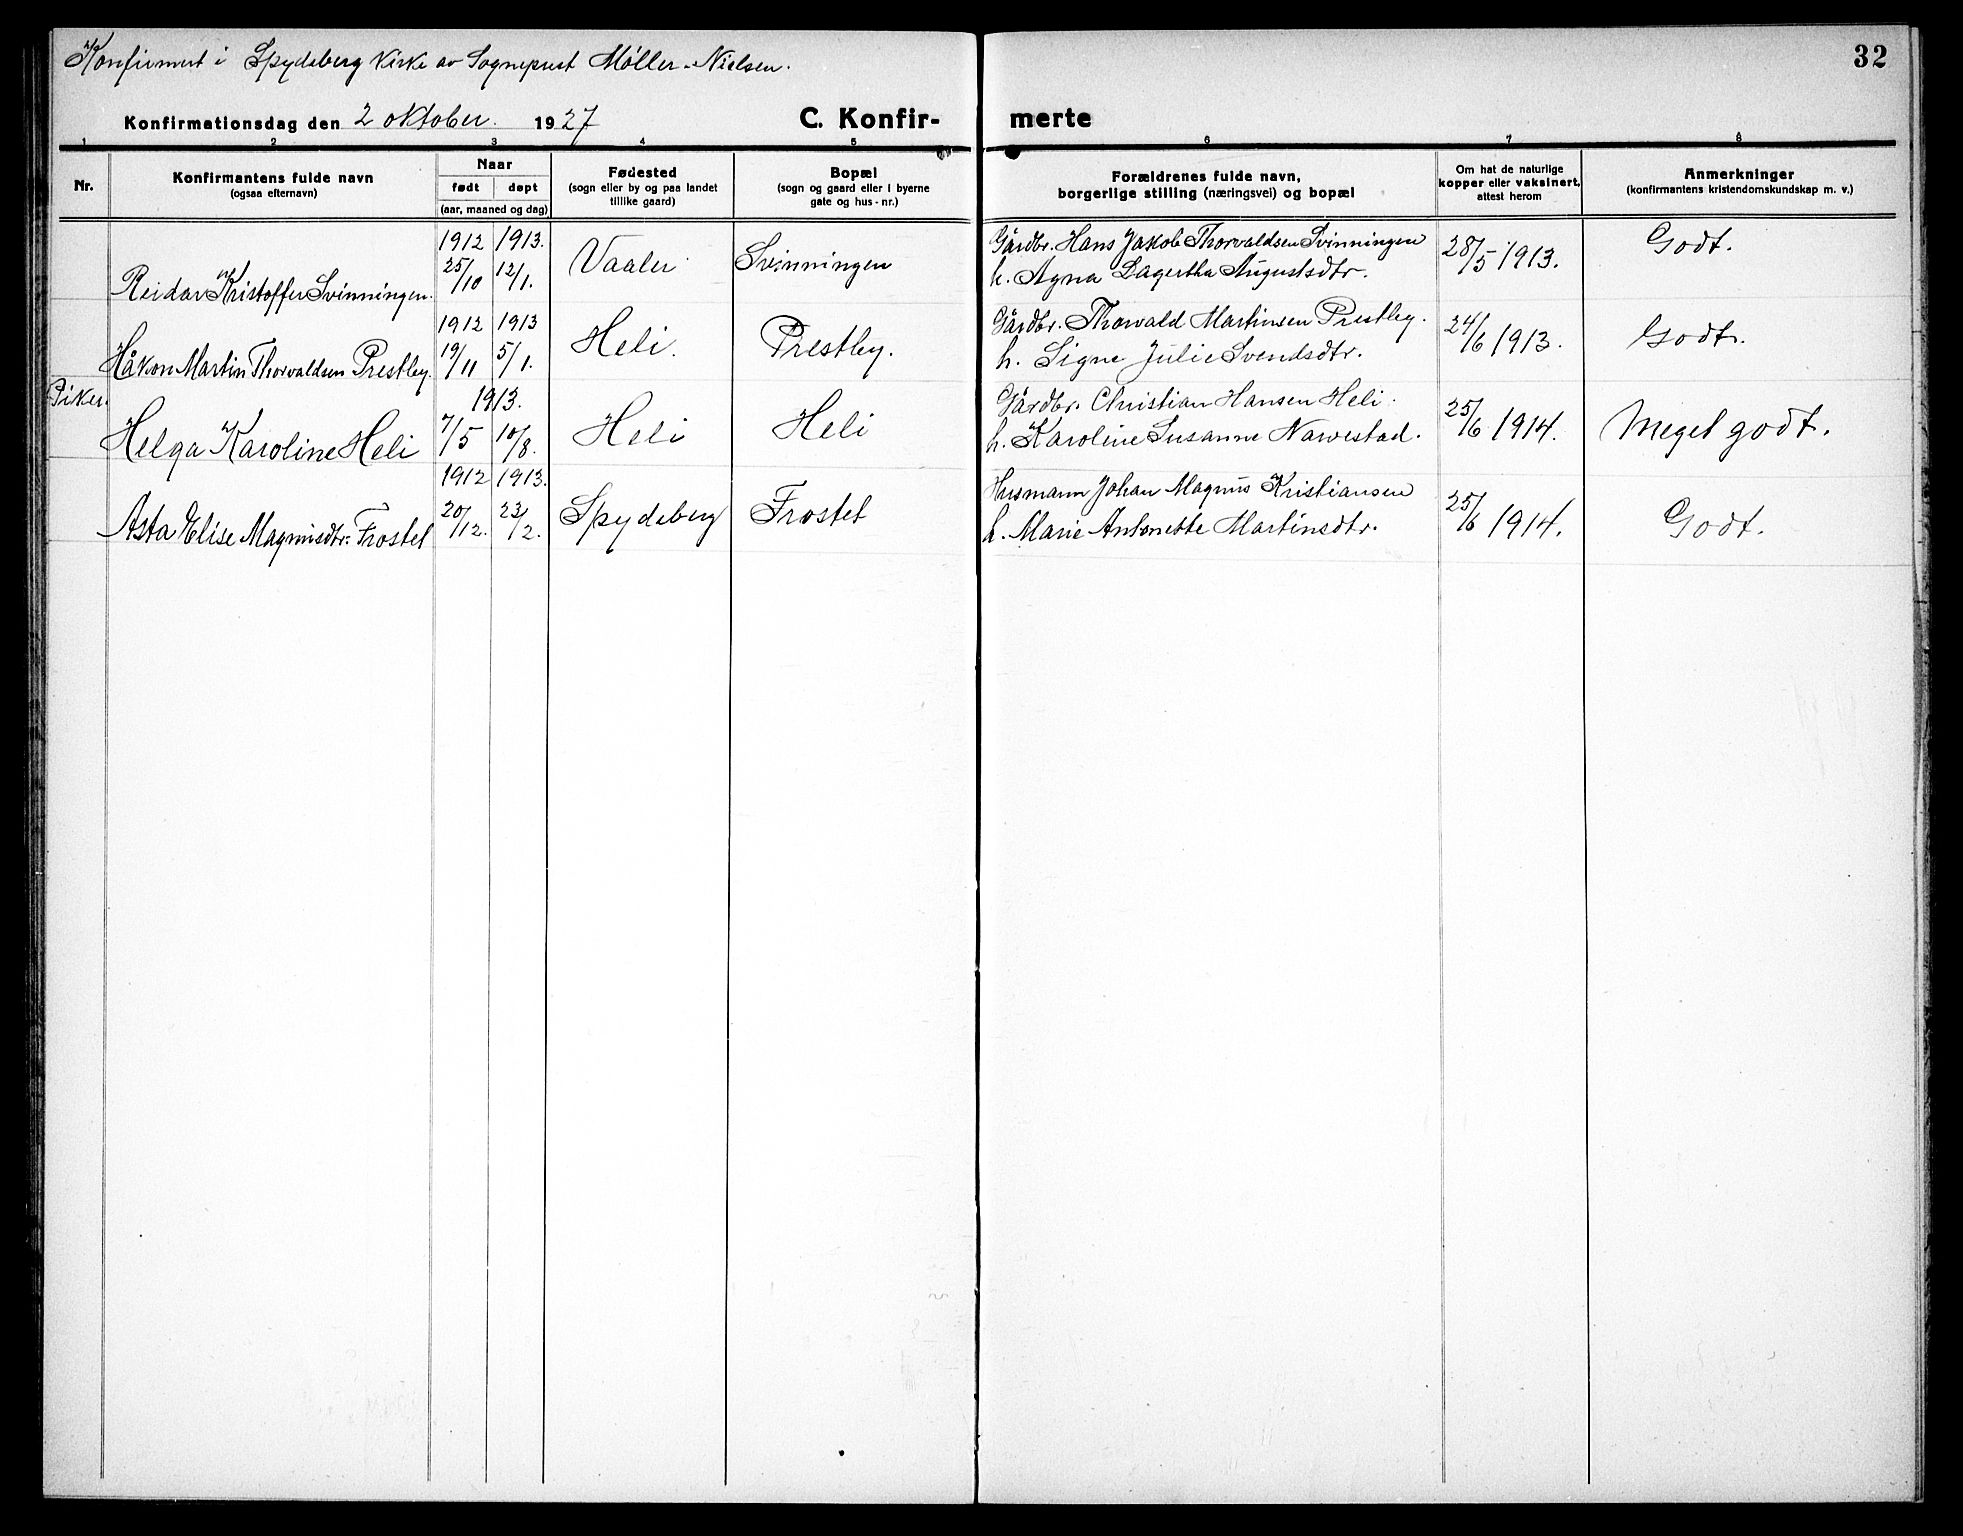 Konfirmert i Spydeberg Kirke av Sogneprest Møller-Nielsen.
32
Konfirmationsdag den 2 oktober. 1927
C. Konfir-
merte
1 2 3 4 5 6 7 8
Nr.
Konfirmantens fulde navn
(ogsaa efternavn)
Naar
født døpt
(aar, maaned og dag)
Fødested
(sogn eller by og paa landet
tillike gaard)
Bopæl
(sogn og gaard eller i byerne
gate og hus-nr.)
Forældrenes fulde navn,
borgerlige stilling (næringsvei) og bopæl
Om hat de naturlige
kopper eller vaksinert,
attest herom
Anmerkninger
(konfirmantens kristendomskundskap m. v.)
1912 1913. Gårdbr. Hans Jakob Thorvaldsen Svinningen
Reidar Kristoffer Svinningen. 25/10 12/1. Vaaler Svinningen h. Agna Lagertha Augustsdtr. 28/5 1913. Godt.
1912 1913 Gårdbr. Thorvald Martinsen Prestby.
Håkon Martin Thorvaldsen Prestby. 19/11 5/1. Heli. Prestby. h. Signe Julie Svendsdtr. 24/6 1913. Godt.
Piker.
1913. Gårdbr. Christian Hansen Heli.
Helga Karoline Heli 7/5 10/8. Heli Heli h. Karoline Susanne Navestad. 25/6 1914. Meget godt.
1912 1913. Husmann Johan Magnus Kristiansen
Asta Elise Magnusdtr. Frostet 20/12. 23/2. Spydeberg Frostet h. Marie Antonette Martinsdtr. 25/6 1914. Godt.